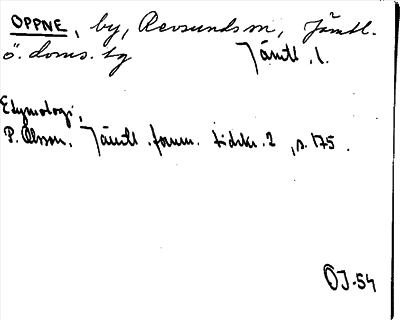 OPPNE, by, Revsunds sn, Jämtl.
ö. doms. tg Jämtl. l.
Etymologi,
P. Olsson, Jämtl. fornm. tidskr. 2, s. 175.
OJ.54